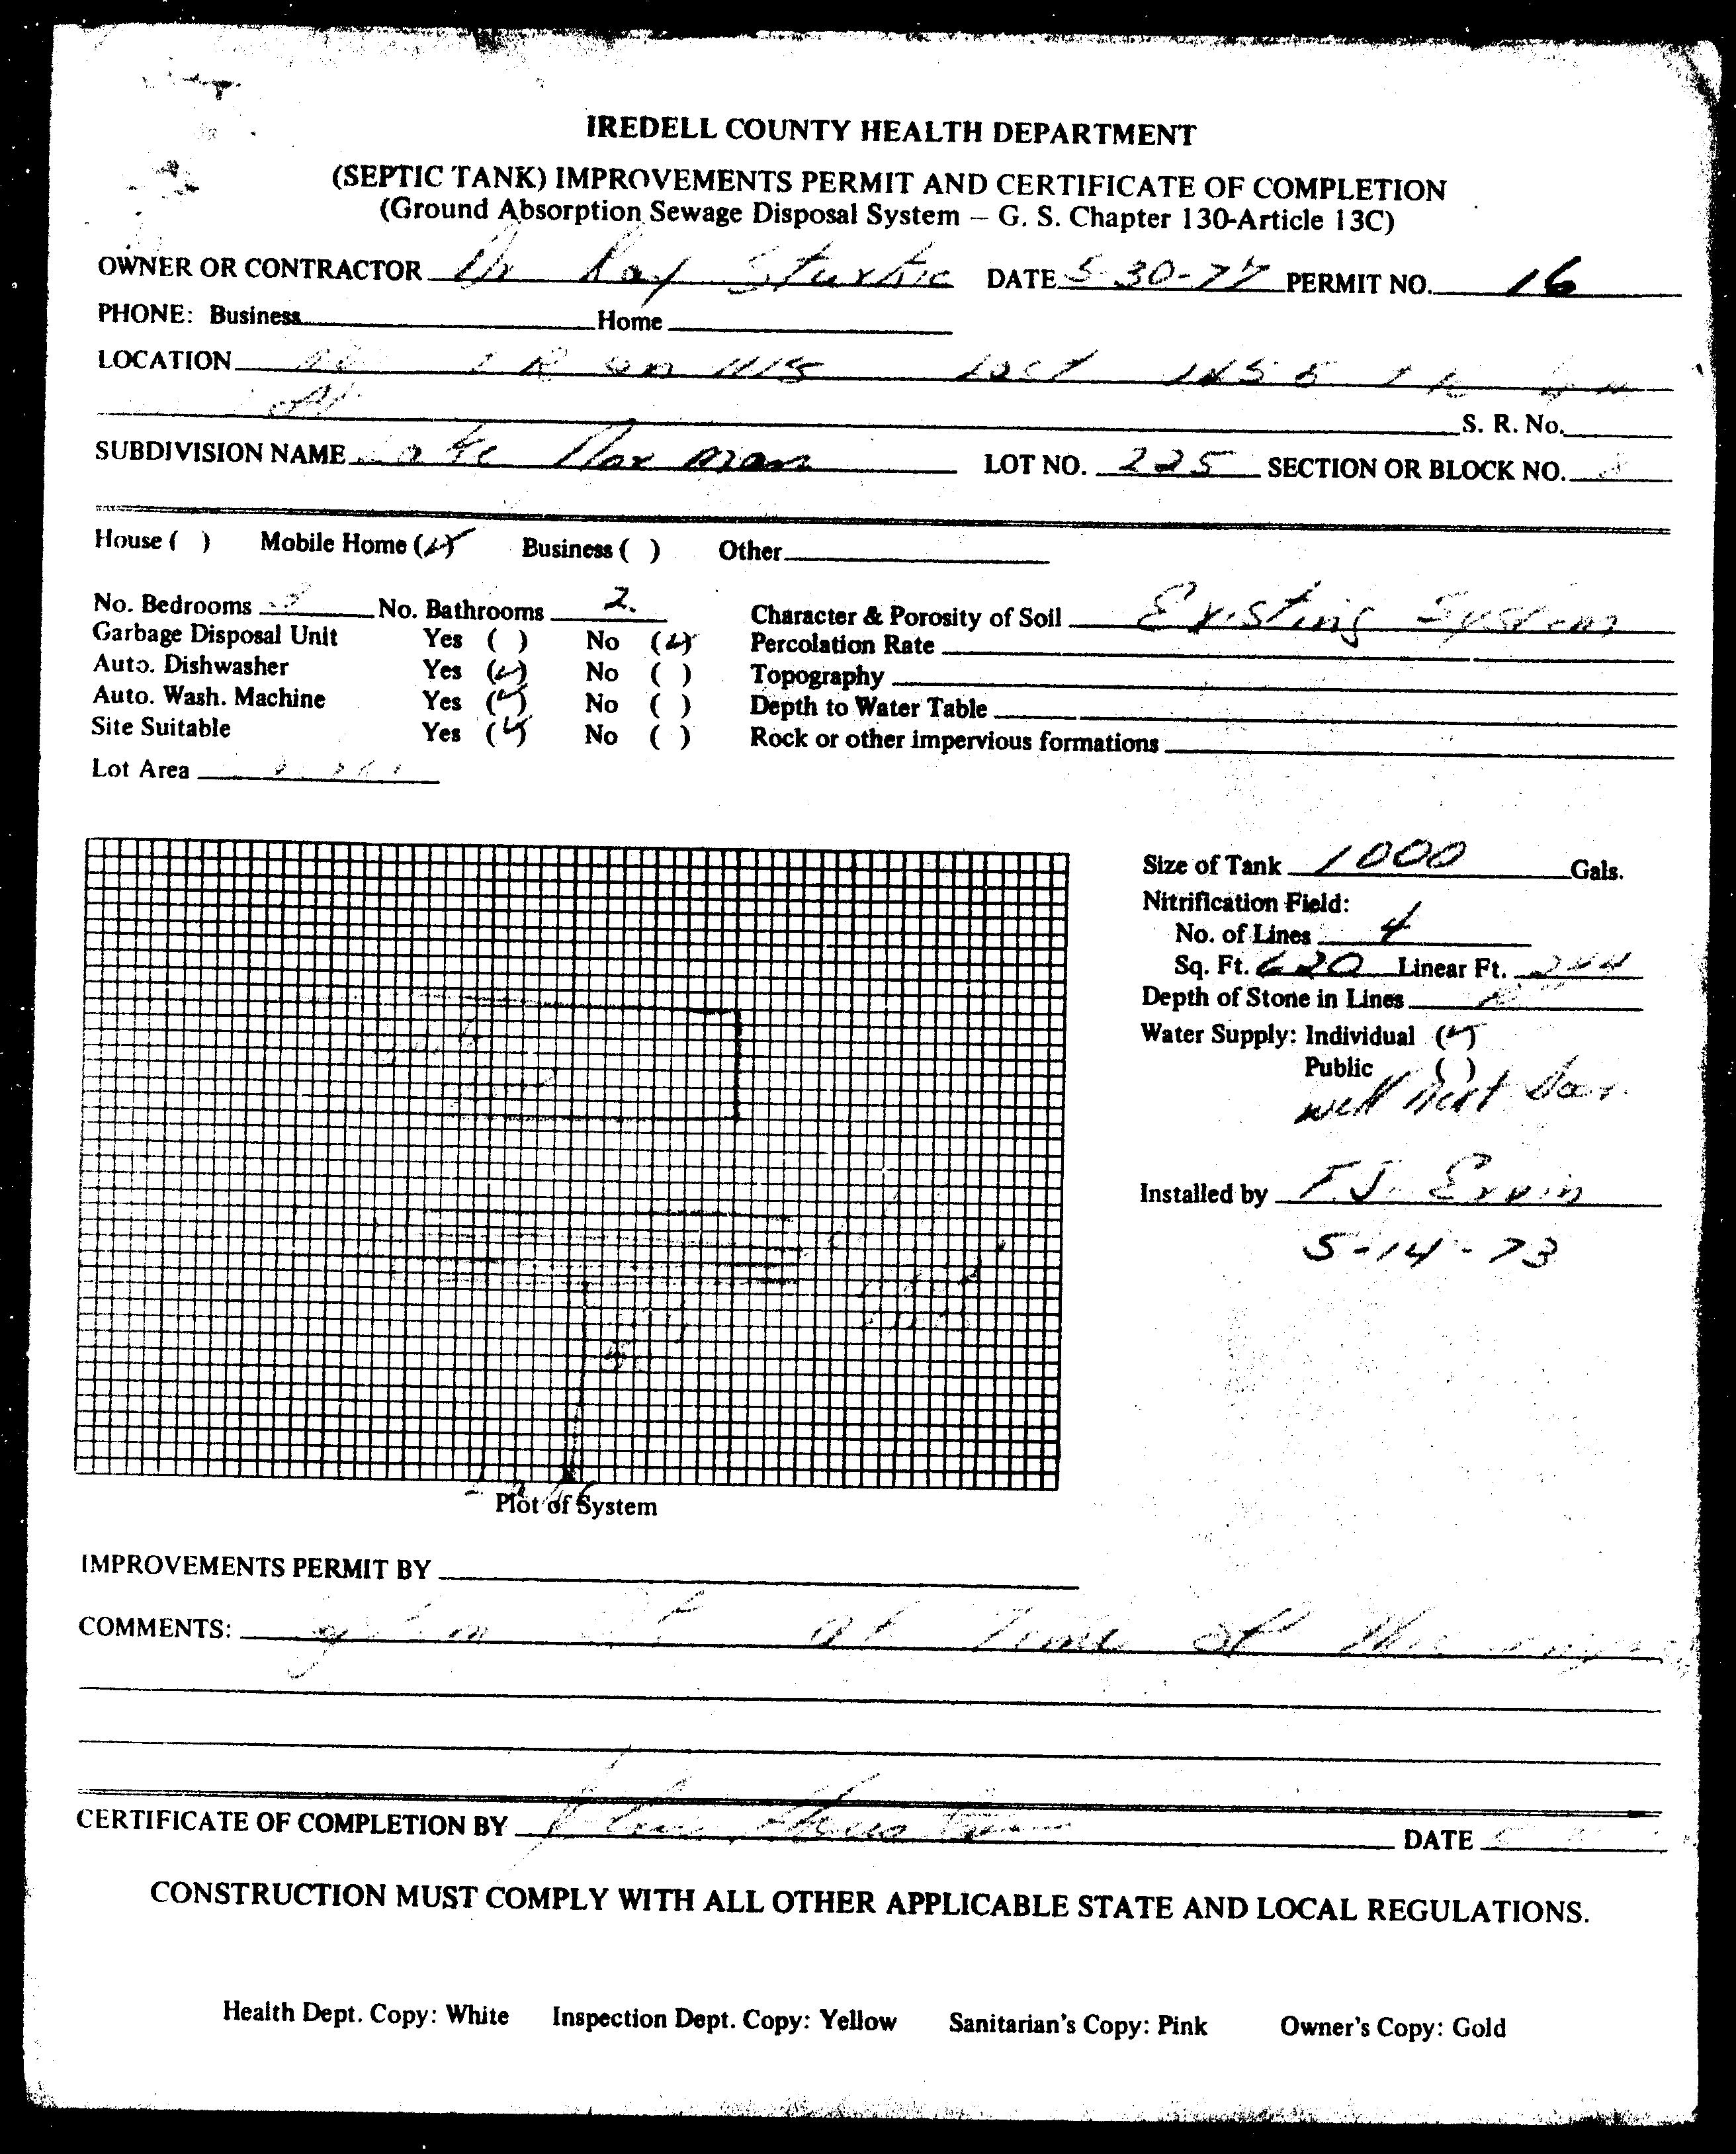 IREDELL COUNTY HEALTH DEPARTMENT
(SEPTIC TANK) IMPROVEMENTS PERMIT AND CERTIFICATE OF COMPLETION
(Ground Absorption Sewage Disposal System – G. S. Chapter 130-Article 13C)
OWNER OR CONTRACTOR Ray DATE 5-30-77 PERMIT NO. 16
PHONE: Business Home
LOCATION on 1115
S. R. No.
SUBDIVISION NAME Lake Norman LOT NO. 225 SECTION OR BLOCK NO.
House ( ) Mobile Home (✓) Business ( ) Other
No. Bedrooms No. Bathrooms 2. Character & Porosity of Soil Existing System
Garbage Disposal Unit Yes ( ) No (✓) Percolation Rate
Auto. Dishwasher Yes (✓) No ( ) Topography
Auto. Wash. Machine Yes (✓) No ( ) Depth to Water Table
Site Suitable Yes (✓) No ( ) Rock or other impervious formations
Lot Area
Size of Tank 1000 Gals.
Nitrification Field:
No. of Lines 4
Sq. Ft. 620 Linear Ft.
Depth of Stone in Lines
Water Supply: Individual (✓)
Public ( )
well next door.
Installed by F.J. Ervin
5-14-73
Plot of System
IMPROVEMENTS PERMIT BY
COMMENTS: at Time of This
CERTIFICATE OF COMPLETION BY DATE
CONSTRUCTION MUST COMPLY WITH ALL OTHER APPLICABLE STATE AND LOCAL REGULATIONS.
Health Dept. Copy: White Inspection Dept. Copy: Yellow Sanitarian's Copy: Pink Owner's Copy: Gold